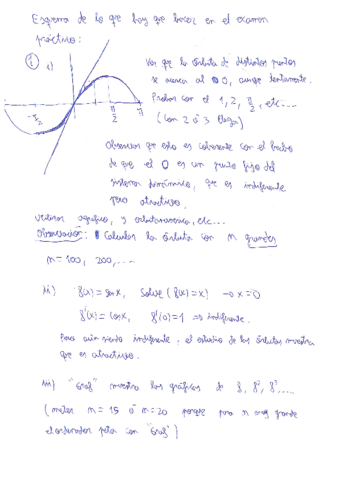 Esquema de lo que hay que hacer en el examen
práctico:
1
i)
Ver que la órbita de distintos puntos
se acerca al 0, aunque lentamente.
Probar con el 1, 2, π/2, etc...
(con 2 ó 3 llega)
-π/2
π/2
π
Observar que esto es coherente con el hecho
de que el 0 es un punto fijo del
sistema dinámico, que es indiferente
pero atractivo.
utilizar agrafico, y orbita, etc...
Observación: Calcular la órbita con n grandes
n=100, 200,....
ii) f(x)=senx, Solve (f(x)=x) → x=0
f'(x)=cosx, f'(0)=1 ⇒ indiferente.
Pero aún siendo indiferente, el estudio de las órbitas muestra
que es atractivo.
iii) "Graf" muestra las gráficas de f, f², f³,....
(meter n=15 ó n=20 porque para n muy grande
el ordenador peta con "Graf")